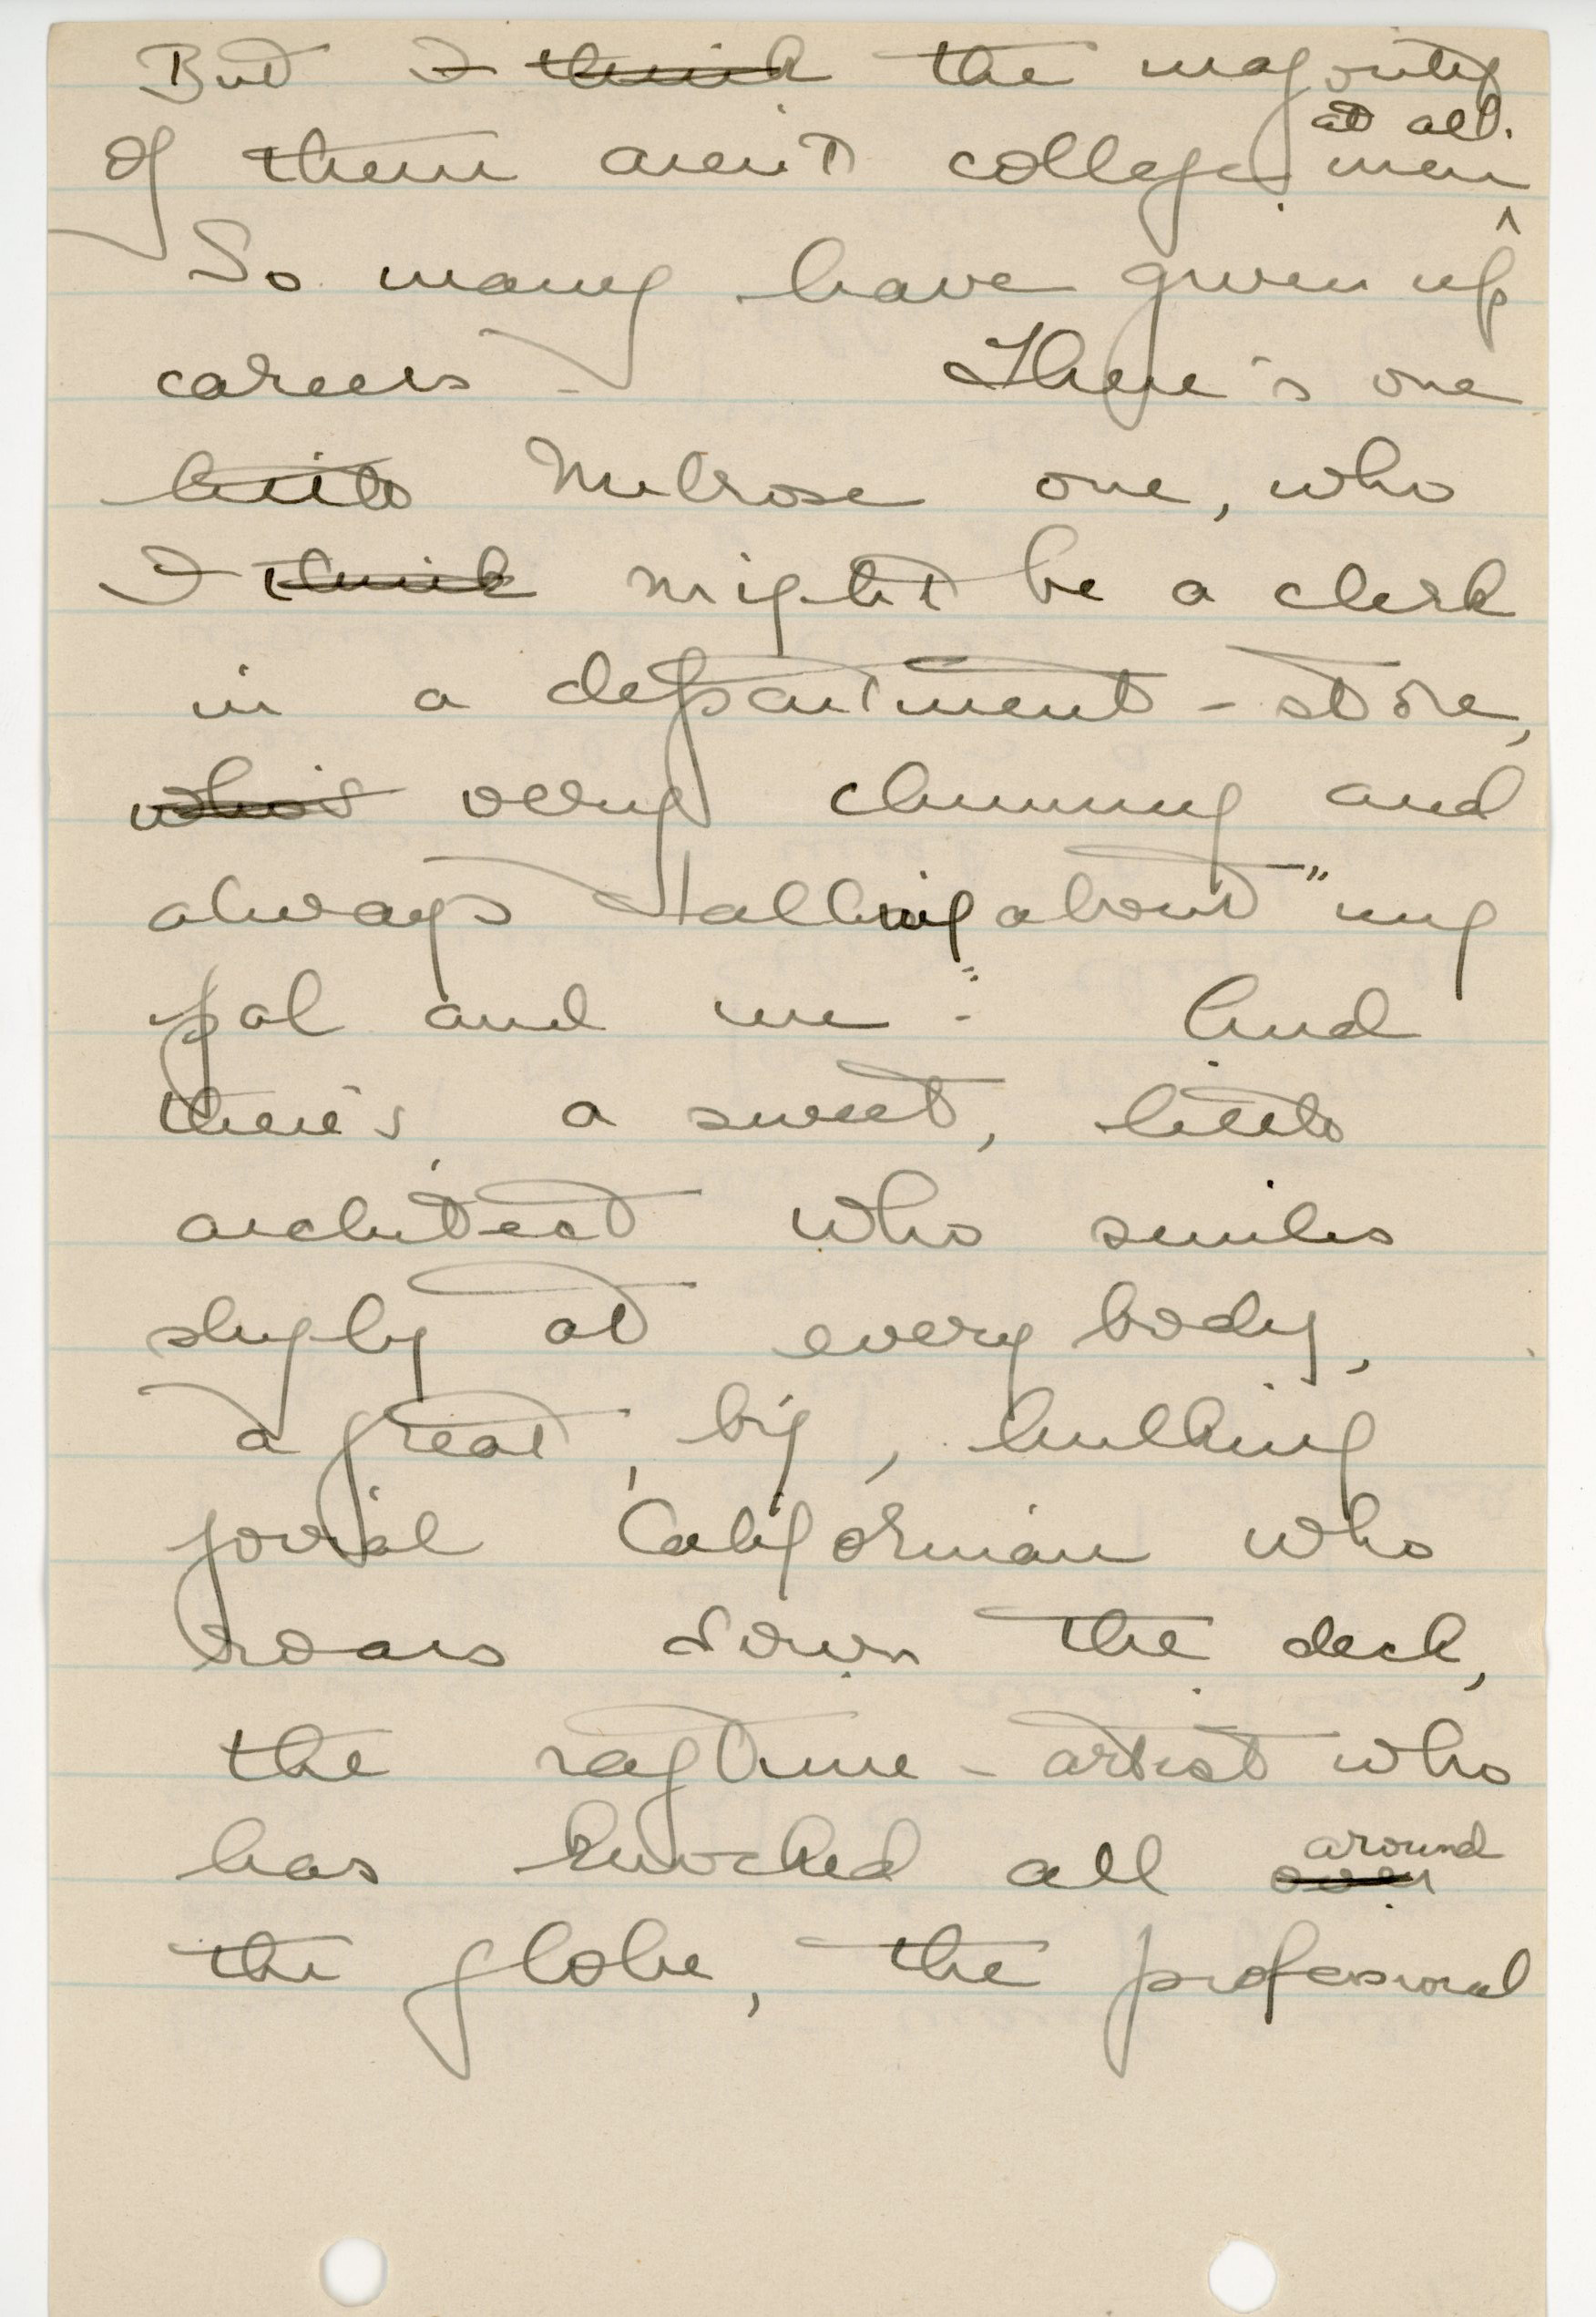 But I think the majority
of them aren't college men at all.
So many have given up
careers - There's one
little Melrose one, who
I think might be a clerk
in a department-store,
who's very chummy and
always talking about "my
pal and me". And
there's a sweet, little
architect who smiles
shyly at everybody,
a great, big, hulking
jovial Californian who
roars down the deck,
the ragtime-artist who
has knocked all over around
the globe, the professional